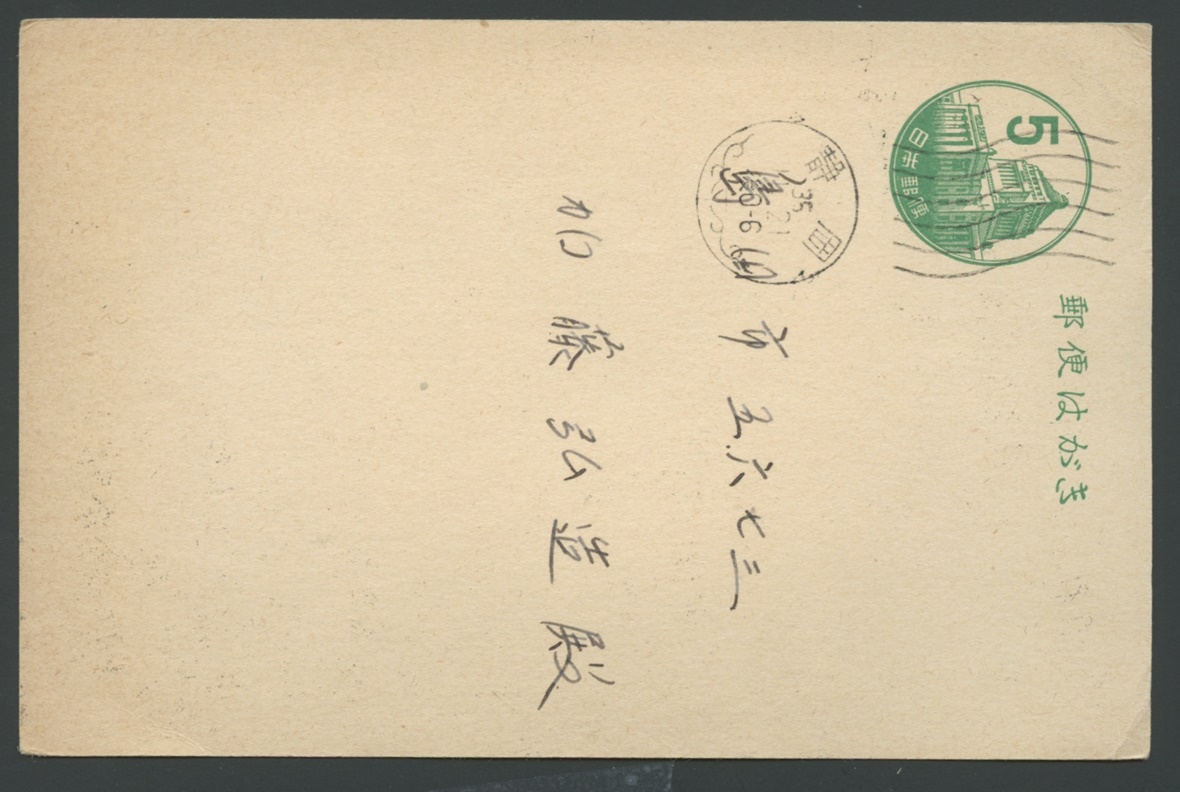 5
日本郵便
郵便はがき
35
21
0-6
市五六七三
加藤弘造殿